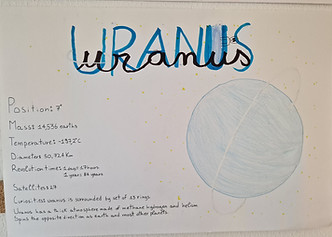 URANUS
uranus
Position: 7°
Mass: 14,536 earths
Temperature: -197,2°C
Diameter: 50,724 Km
Revolution times: 1 day: 17 hours
1 year: 84 years
Satellites: 27
Curiosities: uranus is surrounded by set of 13 rings
Uranus has a thick atmosphere made of methane hydrogen and helium
Spins the opposite direction as earth and most other planets.